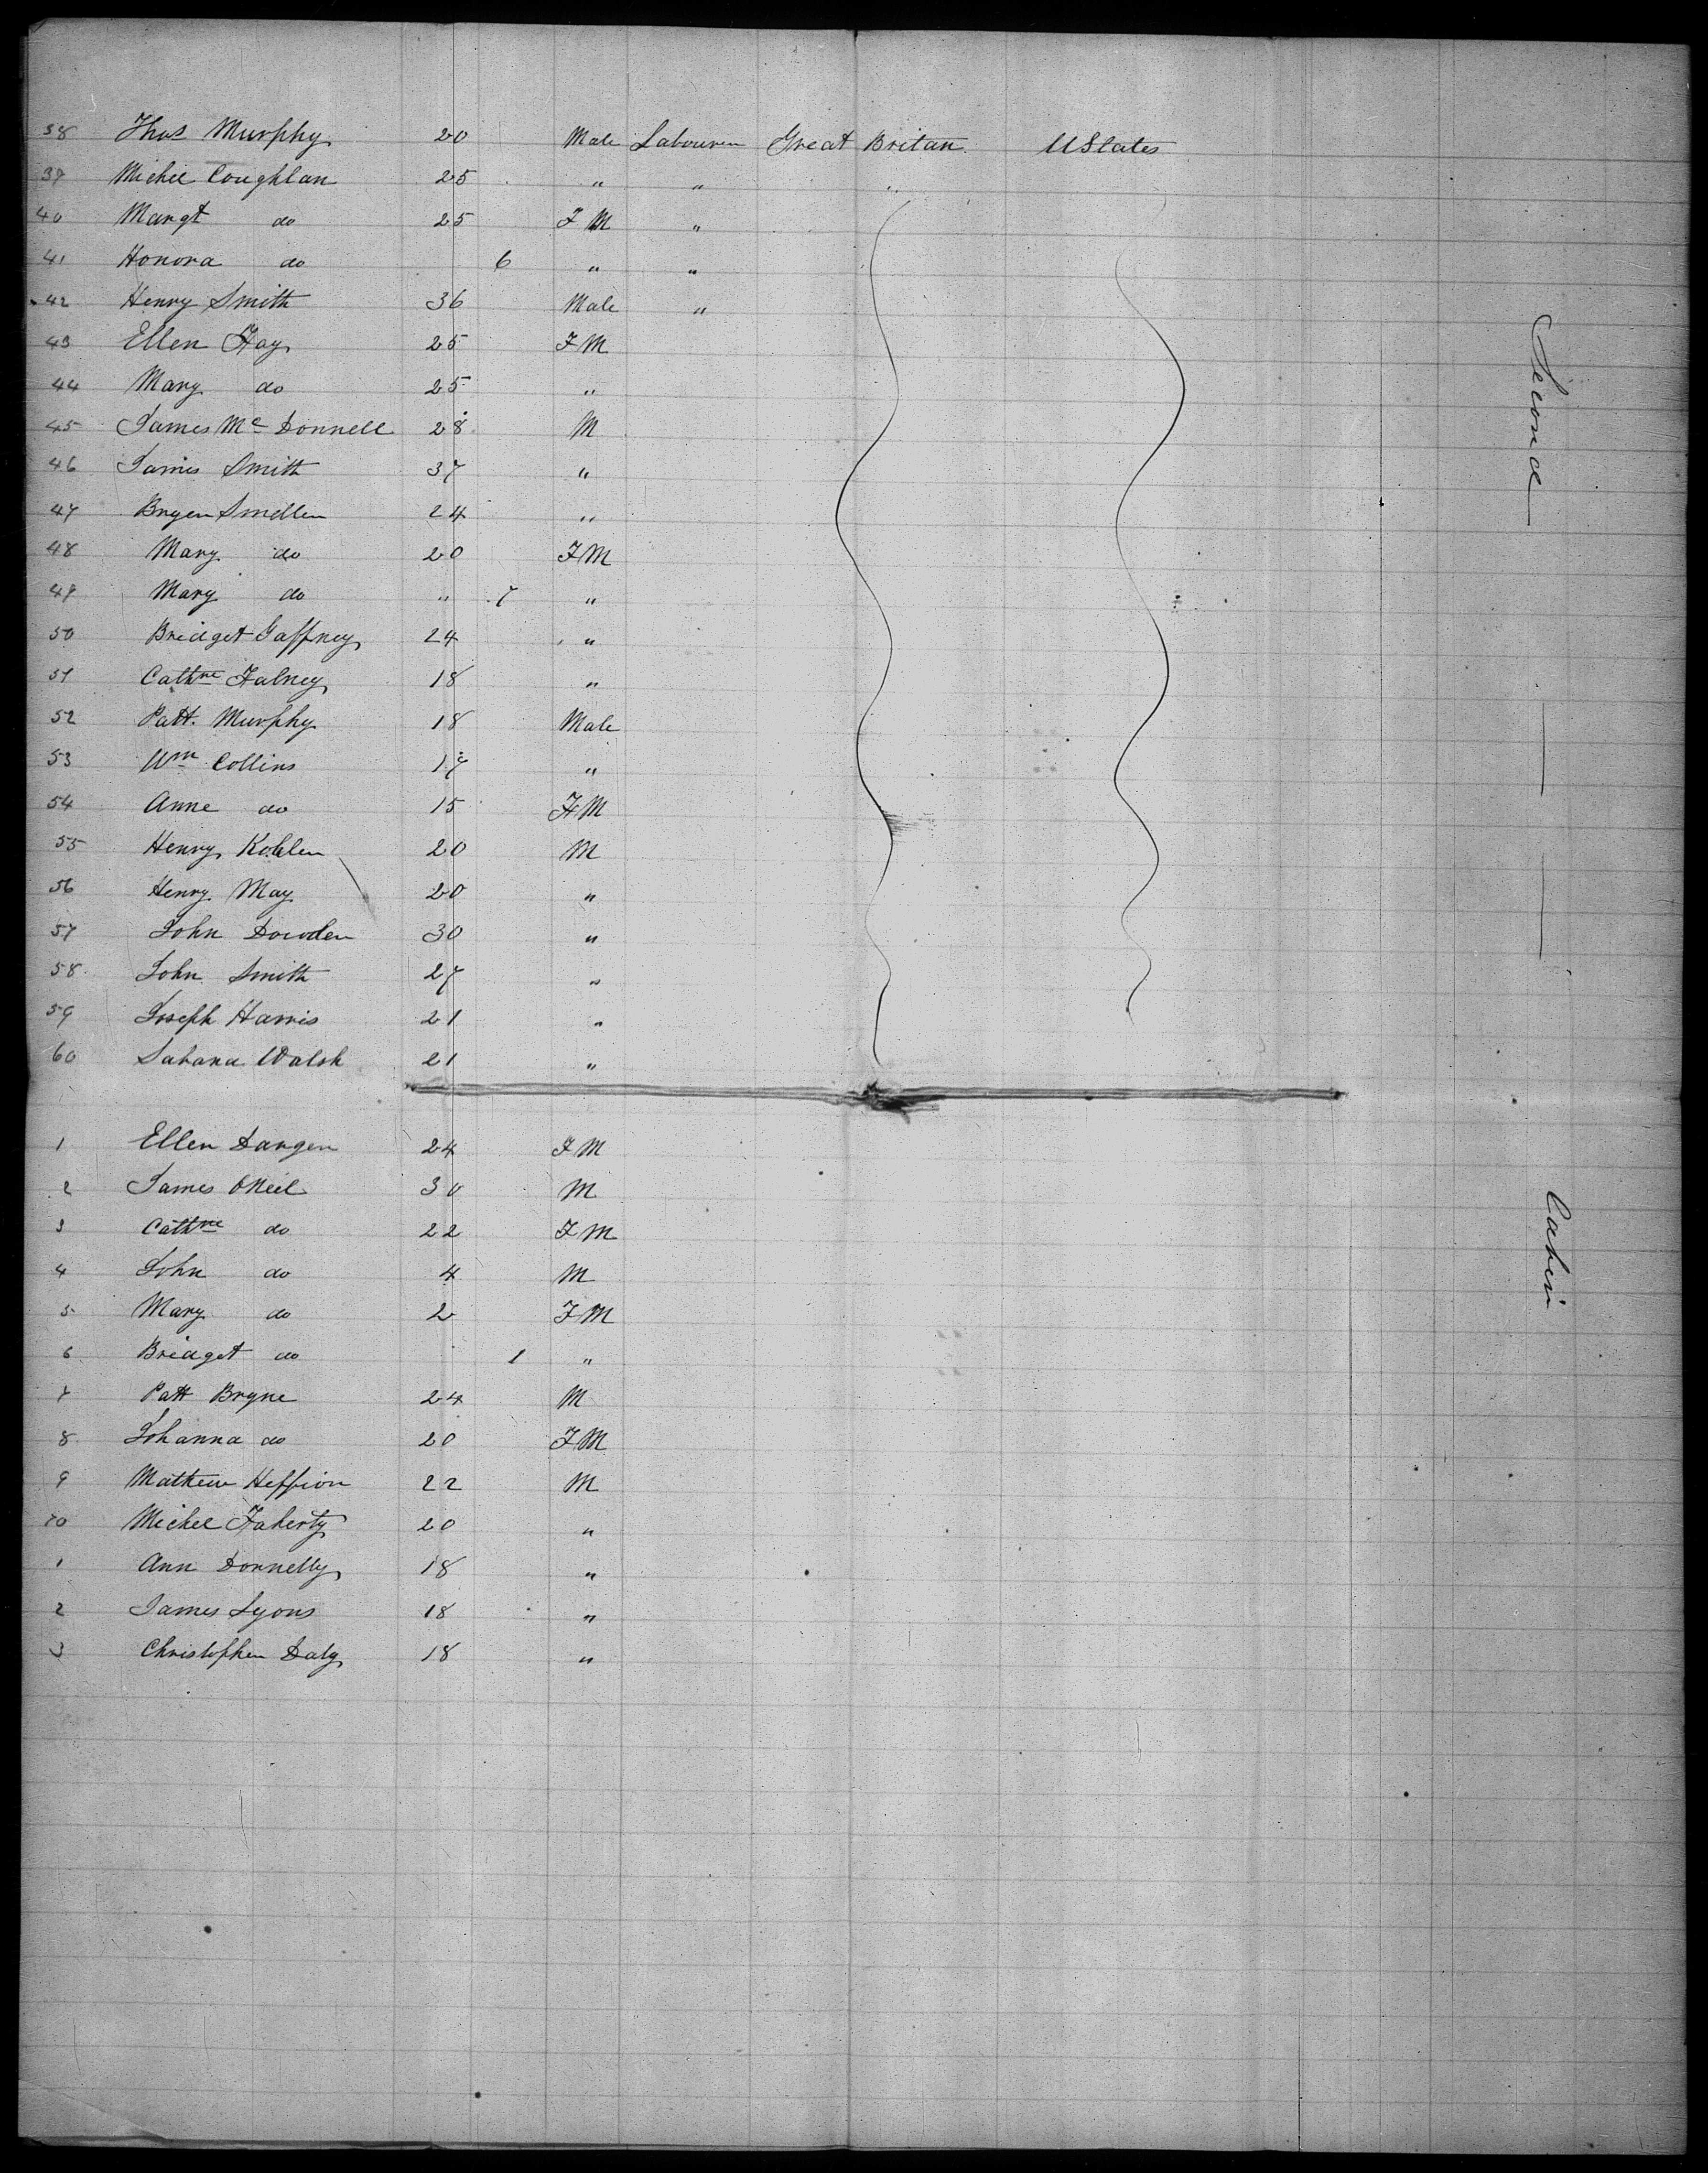 38 Thos Murphy 20 Male Labourer Great Britan UStates
39 Michel Coughlan 25 " " "
40 Margt do 25 F M "
41 Honora do 6 " "
42 Henry Smith 36 Male "
43 Ellen Hay 25 F M
44 Mary do 25 "
45 James Mc Donnell 28 M
46 James Smith 37 "
47 Bryen Smellen 24 "
48 Mary do 20 F M
49 Mary do " 7 "
50 Bridget Gaffney 24 "
51 Cathne Falney 18 "
52 Patt. Murphy 18 Male
53 Wm Collins 17 "
54 Anne do 15 F M
55 Henry 20 M
56 Henry May 20 "
57 John Dowden 30 "
58 John Smith 27 "
59 Joseph Harris 21 "
60 Walsh 21 "
1 Ellen Dargen 24 F M
2 James ONeil 30 M
3 Cathne do 22 F M
4 John do 4 M
5 Mary do 2 F M
6 Bridget do 1 "
7 Patt Bryne 24 M
8 Johanna do 20 F M
9 Mathew Heffion 22 M
10 Michel Faherty 20 "
1 Ann Donnelly 18 "
2 James Lyons 18 "
3 Christopher Daly 18 "
Second
Cabin